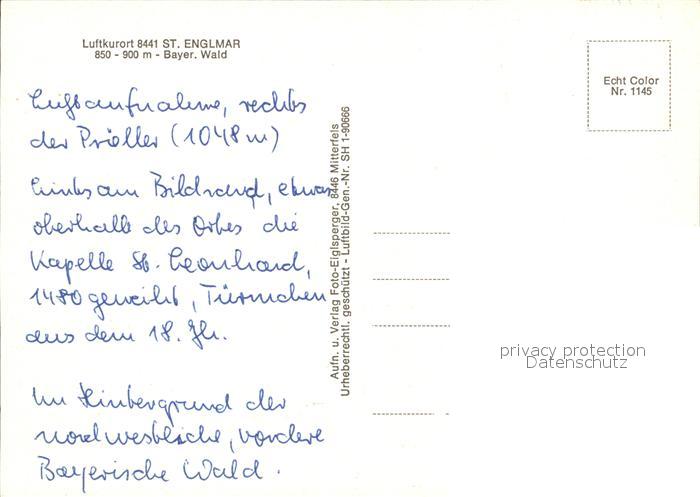 Luftkurort 8441 ST. ENGLMAR
850 - 900 m - Bayer. Wald
Echt Color
Nr. 1145
Luftaufnahme, rechts
der Pröller (1048 m)
links am Bildrand, etwas
oberhalb des Ortes die
Kapelle St. Leonhard,
1480 geweiht, Türmchen
aus dem 18. Jh.
Im Hintergrund der
nordwestliche, vordere
Bayerische Wald.
Aufn. u. Verlag Foto-Eiglsperger, 8446 Mitterfels
Urheberrechtl. geschützt - Luftbild-Gen.-Nr. SH 1-90666
privacy protection
Datenschutz